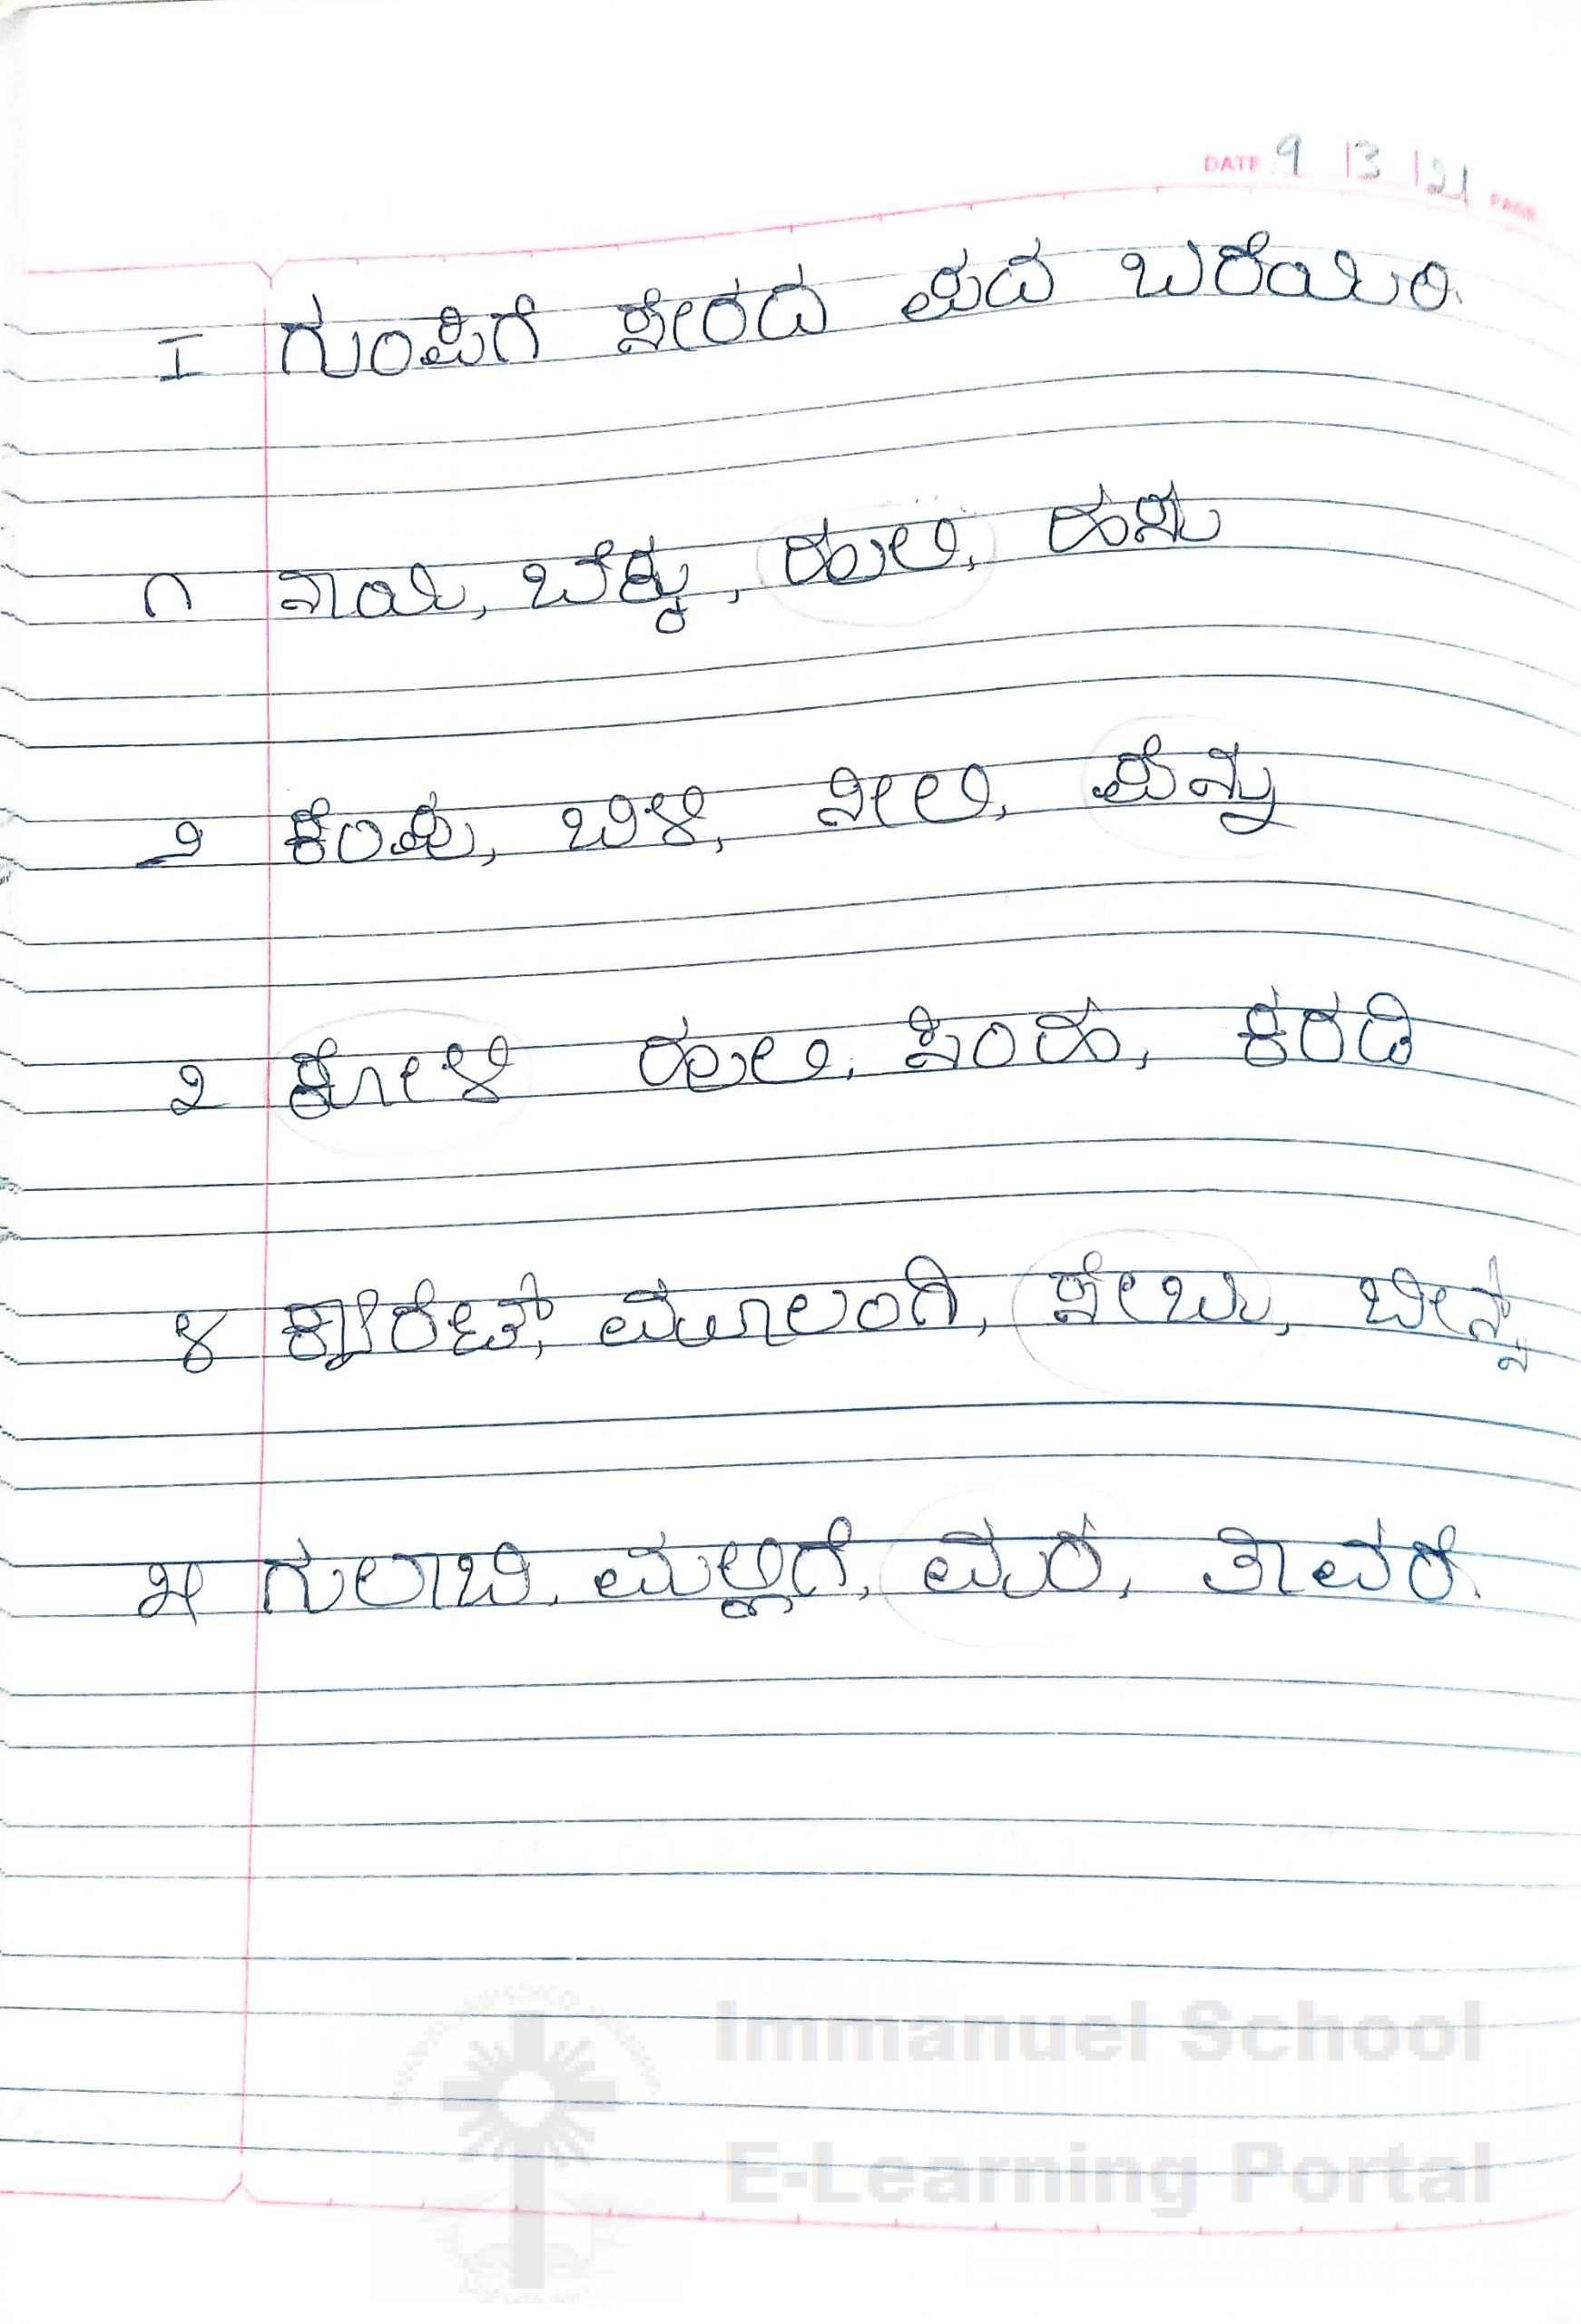 DATE 9 | 3 | 21 PAGE
I ಗುಂಪಿಗೆ ಸೇರದ ಪದ ಬರೆಯಿರಿ.
೧ ನಾಯಿ, ಬೆಕ್ಕು, ಹುಲಿ, ಹಸು
೨ ಕೆಂಪು, ಬಿಳಿ, ನೀಲಿ, ಪೆನ್ನು
೨ ಕೋಳಿ ಹುಲಿ, ಸಿಂಹ, ಕರಡಿ
೪ ಕ್ಯಾರೆಟ್, ಮೂಲಂಗಿ, ಸೇಬು, ಬೀನ್ಸ್
೫ ಗುಲಾಬಿ, ಮಲ್ಲಿಗೆ, ಮರ, ತಾವರೆ.
Immanuel School
E-Learning Portal